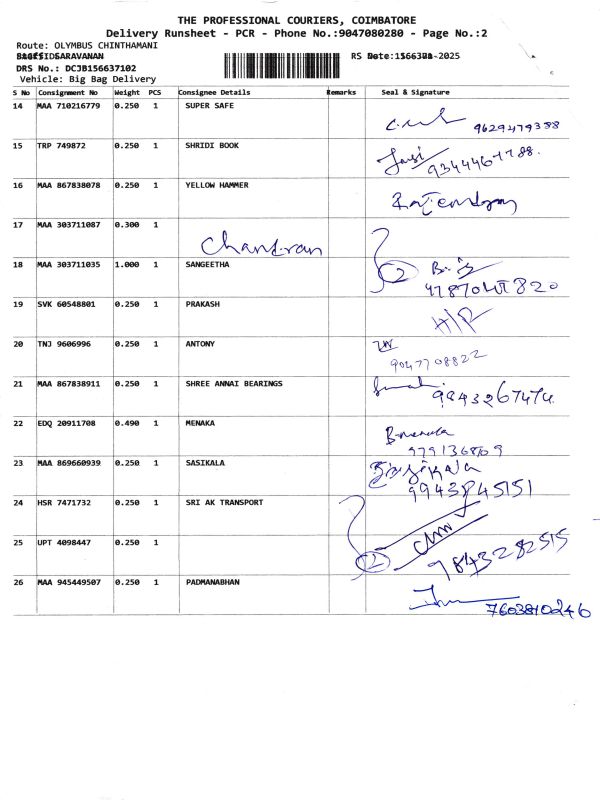 THE PROFESSIONAL COURIERS, COIMBATORE
Delivery Runsheet - PCR - Phone No.:9047080280 - Page No.:2
Route: OLYMBUS CHINTHAMANI
SARAVANAN
DRS No.: DCJB156637102
Vehicle: Big Bag Delivery
RS -2025
S No Consignment No Weight PCS Consignee Details Remarks Seal & Signature
14 MAA 710216779 0.250 1 SUPER SAFE
9629479388
15 TRP 749872 0.250 1 SHRIDI BOOK
9344467788.
16 MAA 867838078 0.250 1 YELLOW HAMMER
17 MAA 303711087 0.300 1
Chandran
18 MAA 303711035 1.000 1 SANGEETHA
2
19 SVK 60548801 0.250 1 PRAKASH
H/R
20 TNJ 9606996 0.250 1 ANTONY
9047708822
21 MAA 867838911 0.250 1 SHREE ANNAI BEARINGS
9843267474
22 EDQ 20911708 0.490 1 MENAKA
B.menaka
9791368109
23 MAA 869660939 0.250 1 SASIKALA
Sasikala
9943845151
24 HSR 7471732 0.250 1 SRI AK TRANSPORT
25 UPT 4098447 0.250 1
2
9843282515
26 MAA 945449507 0.250 1 PADMANABHAN
7603810246